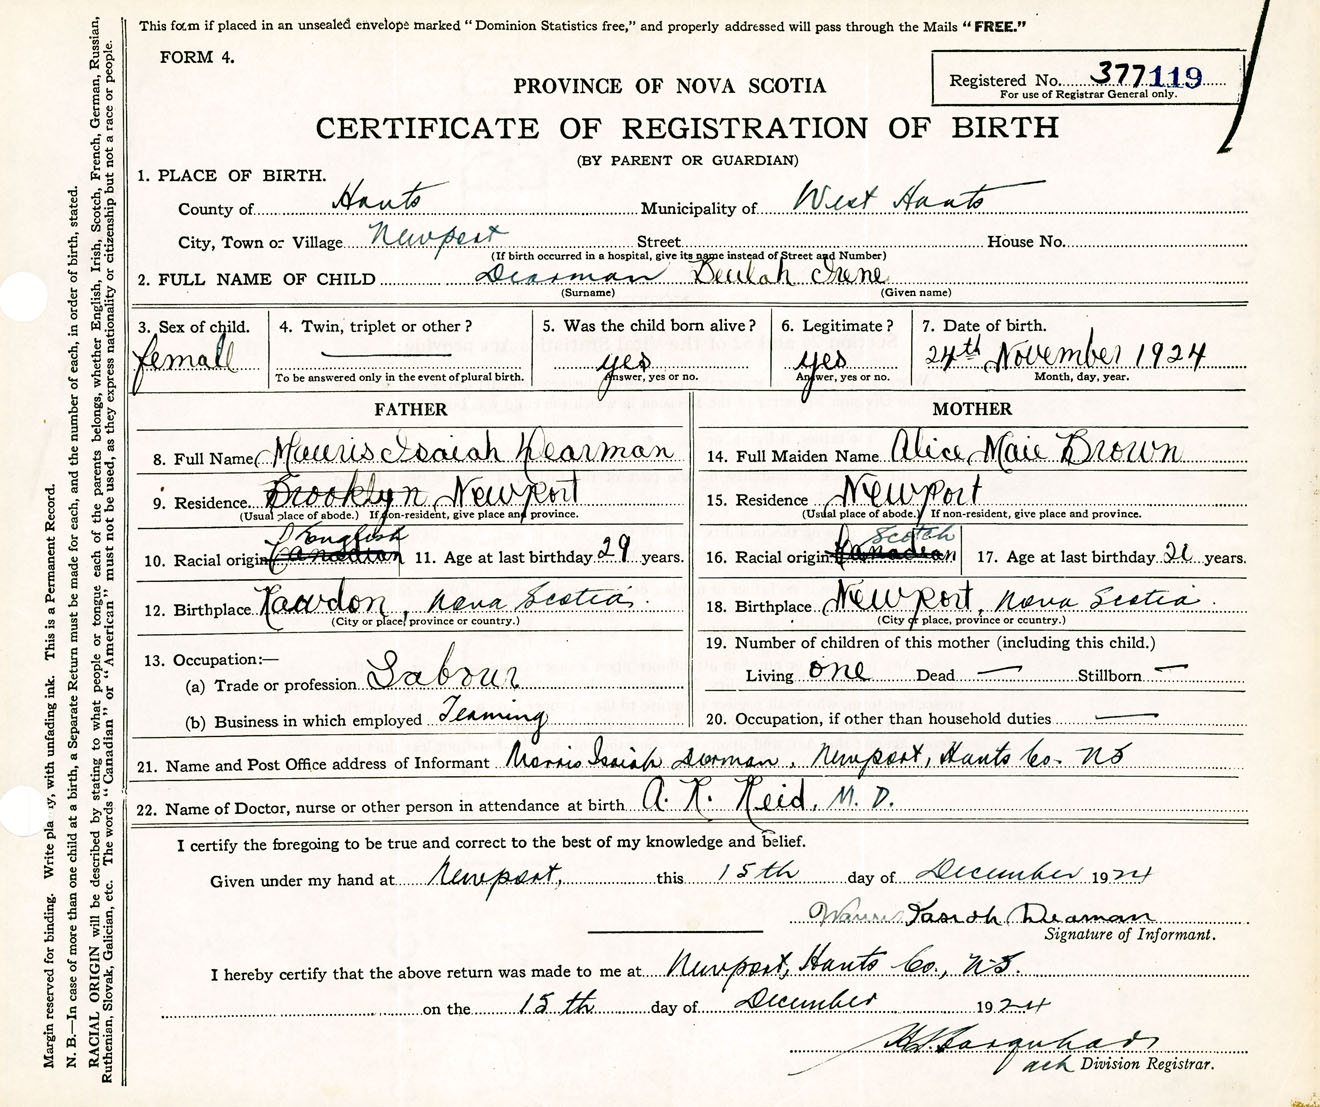 This form if placed in an unsealed envelope marked "Dominion Statistics free," and properly addressed will pass through the Mails "FREE."
FORM 4.
Registered No. 377119
For use of Registrar General only.
PROVINCE OF NOVA SCOTIA
CERTIFICATE OF REGISTRATION OF BIRTH
(BY PARENT OR GUARDIAN)
1. PLACE OF BIRTH.
County of Hants Municipality of West Hants
City, Town or Village Newport Street House No.
(If birth occurred in a hospital, give its name instead of Street and Number)
2. FULL NAME OF CHILD Dearman Beulah Irene
(Surname) (Given name)
3. Sex of child. 4. Twin, triplet or other? 5. Was the child born alive? 6. Legitimate? 7. Date of birth.
female — yes yes 24th November 1924
To be answered only in the event of plural birth. Answer, yes or no. Answer, yes or no. Month, day, year.
FATHER MOTHER
8. Full Name Mauris Isaiah Dearman 14. Full Maiden Name Alice Maie Brown
9. Residence Brooklyn Newport 15. Residence Newport
(Usual place of abode.) If non-resident, give place and province. (Usual place of abode.) If non-resident, give place and province.
English Scotch
10. Racial origin Canadian 11. Age at last birthday 29 years. 16. Racial origin Canadian 17. Age at last birthday 21 years.
12. Birthplace Rawdon, Nova Scotia. 18. Birthplace Newport, Nova Scotia.
(City or place, province or country.) (City or place, province or country.)
19. Number of children of this mother (including this child.)
13. Occupation:—
Living one Dead — Stillborn —
(a) Trade or profession Labour
(b) Business in which employed Teaming 20. Occupation, if other than household duties —
21. Name and Post Office address of Informant Morris Isaiah Dorman, Newport, Hants Co. NS
22. Name of Doctor, nurse or other person in attendance at birth A. R. Reid, M. D.
I certify the foregoing to be true and correct to the best of my knowledge and belief.
Given under my hand at Newport, this 15th day of December 1924
Dearman
Signature of Informant.
I hereby certify that the above return was made to me at Newport, Hants Co., N.S.
on the 15th day of December 1924
Farquhar
Division Registrar.
Margin reserved for binding. Write plainly, with unfading ink. This is a Permanent Record.
N. B.—In case of more than one child at a birth, a Separate Return must be made for each, and the number of each, in order of birth, stated.
RACIAL ORIGIN will be described by stating to what people or tongue each of the parents belongs, whether English, Irish, Scotch, French, German, Russian,
Ruthenian, Slovak, Galician, etc. The words "Canadian" or "American" must not be used, as they express nationality or citizenship but not a race or people.